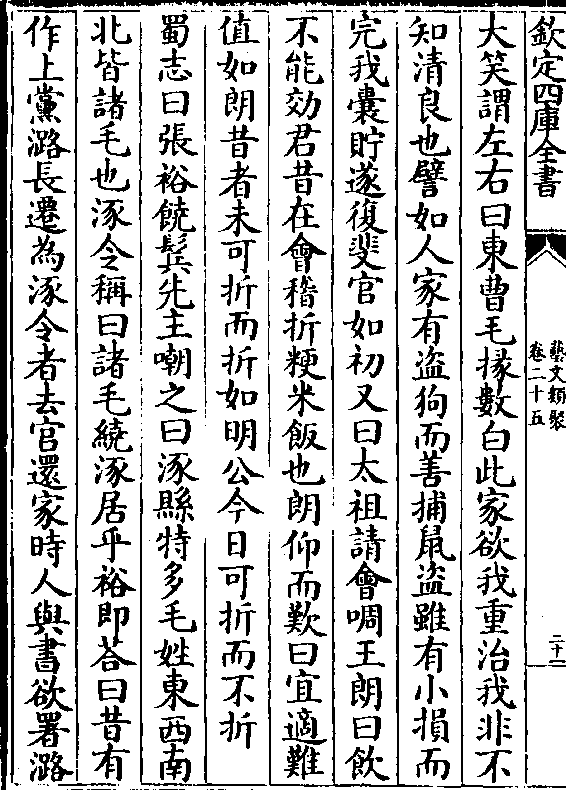 欽定四庫全書
藝文類聚
卷二十五
二十一
大笑謂左右曰東曹毛掾數白此家欲我重治我非不
知清良也譬如人家有盜狗而善捕鼠盜雖有小損而
完我囊貯遂復斐官如初又曰太祖請會啁王朗曰飲
不能効君昔在會稽折粳米飯也朗仰而歎曰宜適難
值如朗昔者未可折而折如明公今日可折而不折
蜀志曰張裕饒髯先主嘲之曰涿縣特多毛姓東西南
北皆諸毛也涿令稱曰諸毛繞涿居乎裕即荅曰昔有
作上黨潞長遷為涿令者去官還家時人與書欲署潞